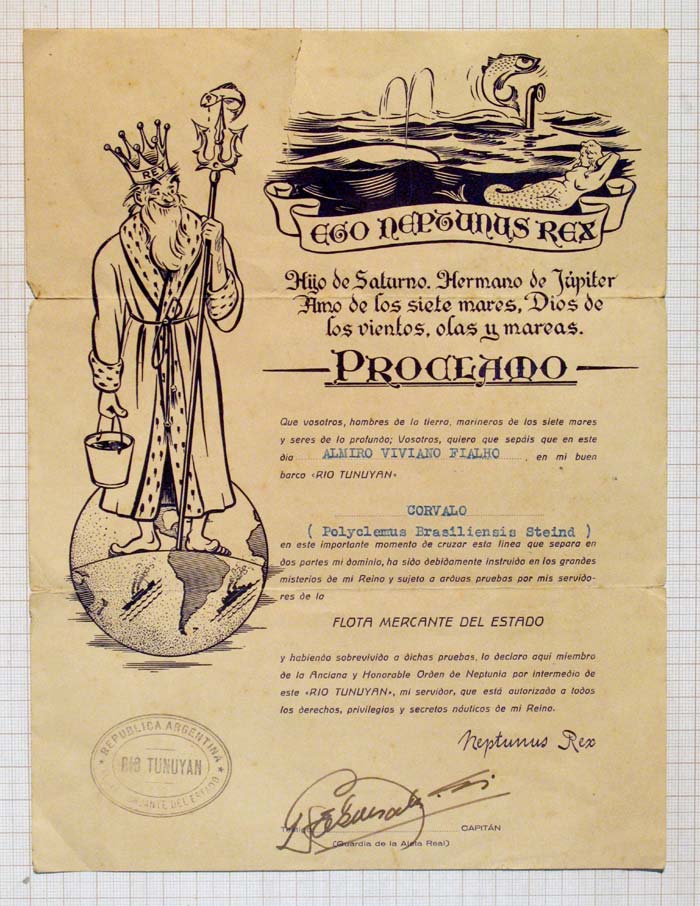 REY
EGO NEPTUNUS REX
Hijo de Saturno. Hermano de Júpiter
Amo de los siete mares, Dios de
los vientos, olas y mareas.
PROCLAMO
Que vosotros, hombres de la tierra, marineros de los siete mares
y seres de lo profundo; Vosotros, quiero que sepáis que en este
día ALMIRO VIVIANO FIALHO, en mi buen
barco «RIO TUNUYAN»
CORVALO
( Polyclemus Brasiliensis Steind )
en este importante momento de cruzar esta línea que separa en
dos partes mi dominio, ha sido debidamente instruido en los grandes
misterios de mi Reino y sujeto a arduas pruebas por mis servido-
res de la
FLOTA MERCANTE DEL ESTADO
y habiendo sobrevivido a dichas pruebas, lo declaro aquí miembro
de la Anciana y Honorable Orden de Neptunia por intermedio de
este «RIO TUNUYAN», mi servidor, que está autorizado a todos
los derechos, privilegios y secretos náuticos de mi Reino.
Neptunus Rex
REPUBLICA ARGENTINA
RIO TUNUYAN
DEL ESTADO
CAPITÁN
(Guardia de la Aleta Real)